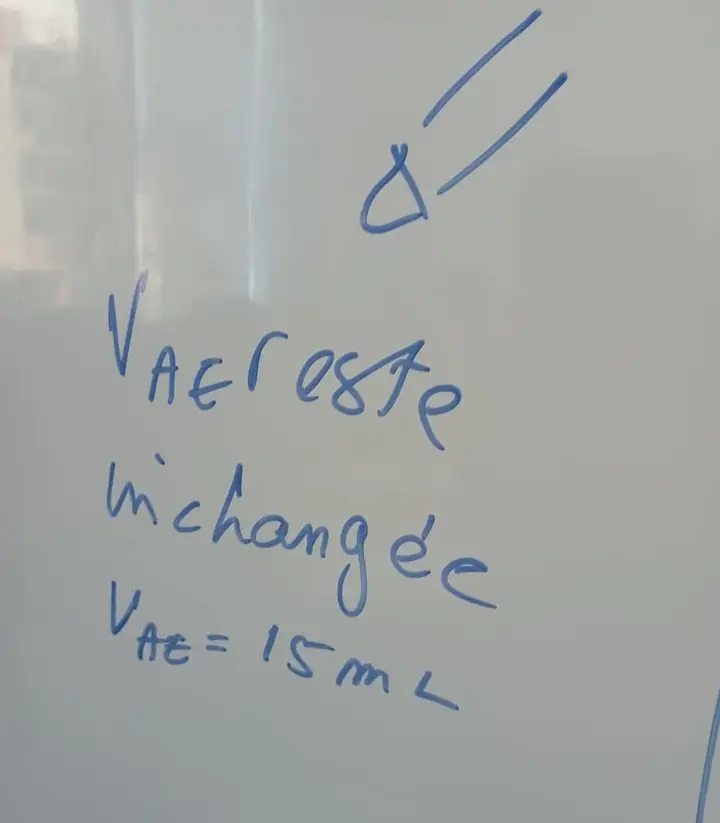 V_AE reste
inchangée
V_AE = 15 mL